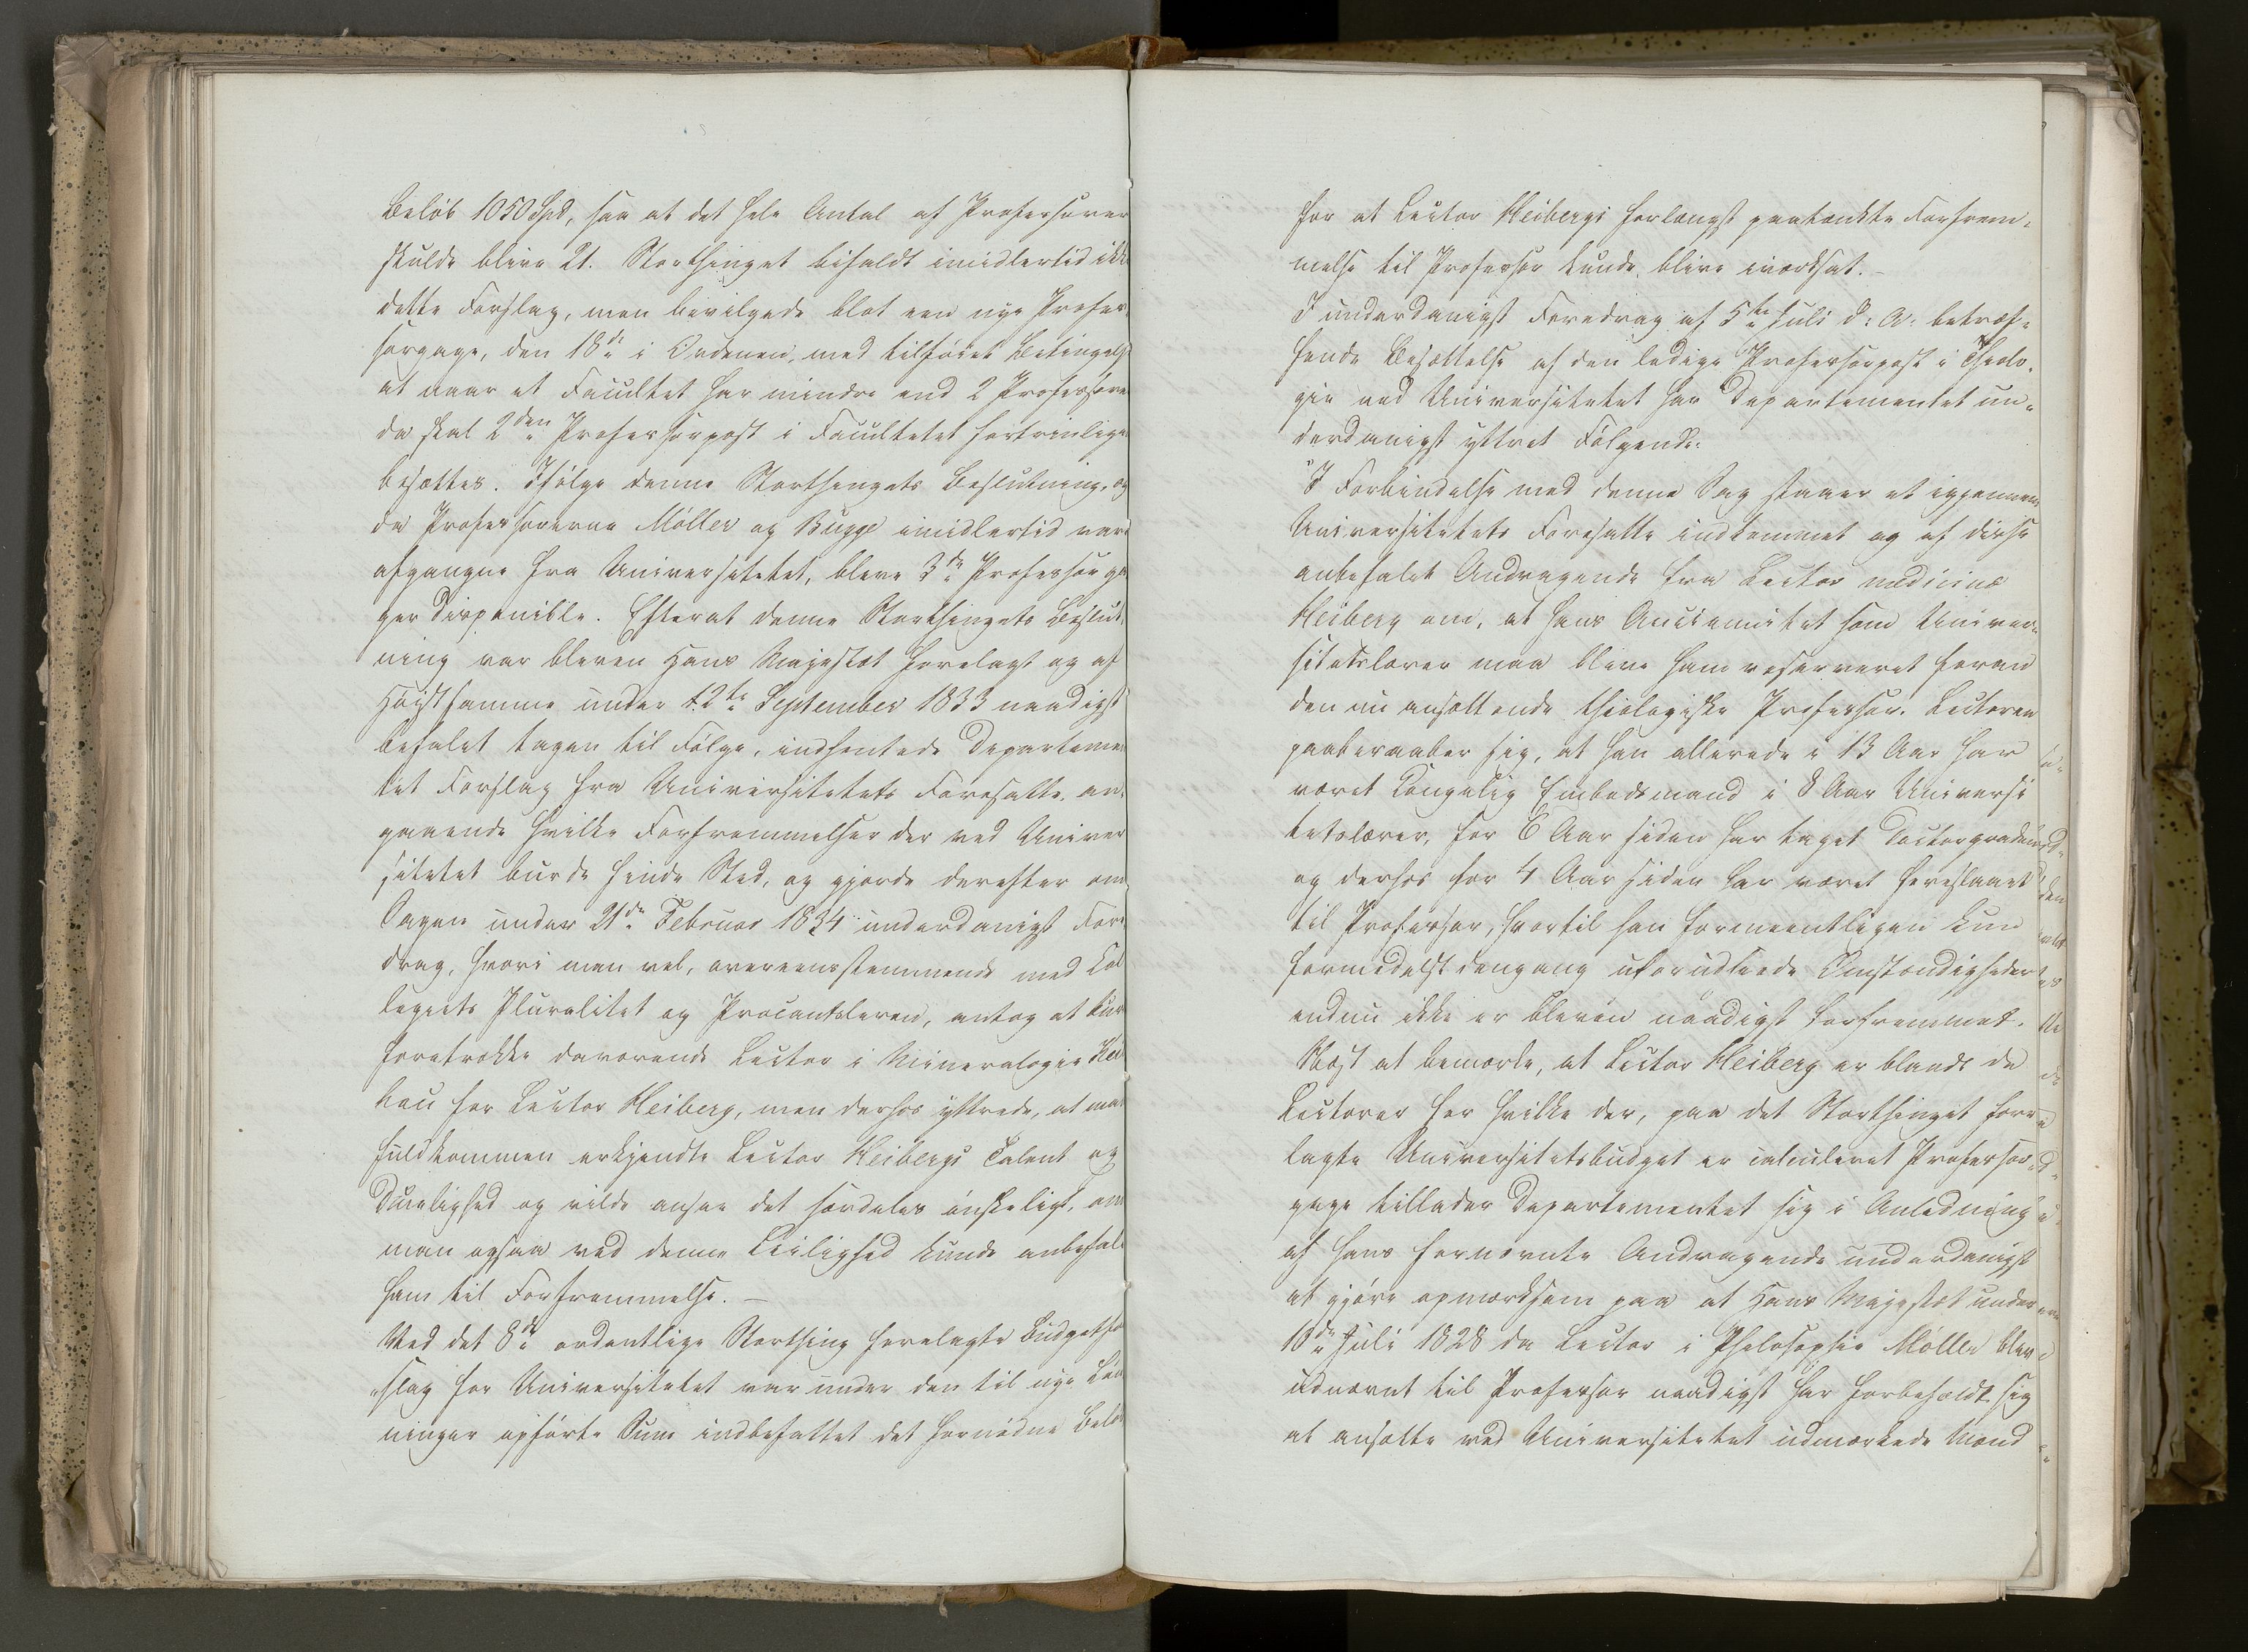 Beløb 1050 Spd, saa at det hele Antal af Professorer
skulde blive 21. Storthinget bifaldt imidlertid ikke
dette Forslag, men bevilgede blot een nye Profes¬
sorgage, den 18de i Ordenen, med tilføiet Betingelse
at naar et Facultet har mindre end 2 Professorer
da skal 2den Professorpost i Facultetet fortrinligen
besættes. Ifølge denne Storthingets Beslutning, og
da Professorerne Möller og Bugge imidlertid vare
afgangne fra Universitetet, bleve 3de Professorga¬
ger disponible. Efterat denne Storthingets Beslut¬
ning var bleven Hans Majestæt forelagt og af
Høistsamme under 12te September 1833 naadigst
befalet tagen til Følge, indhentede Departemen¬
tet Forslag fra Universitetets Foresatte, an¬
gaaende hvilke Forfremmelser der ved Univer
sitetet burde finde Sted, og gjorde derefter om
Sagen under 21de Februar 1834 underdanigst Fore¬
drag, hvori man vel, overeensstemmende med Col
legiets Pluralitet og Procantsleren, antog at burde
foretrække daværende Lector i Mineralogie Kei
hau for Lector Heiberg, men derhos yttrede, at man
fuldkommen erkjendte Lector Heibergs Talent og
Duelighed og vilde ansee det særdeles ønskeligt, om
man ogsaa ved denne Leilighed kunde anbefale
ham til Forfremmelse. —
Ved det 8de ordentlige Storthing forelagte Budgetfor
slag for Universitetet var under den til nye Løn
ninger opførte Sum indbefattet det fornødne Beløb
for at Lector Heibergs forlængst paatænkte Forfrem¬
melse til Professor kunde blive iværksat. —
I underdanigst Foredrag af 5te Juli d: A: betræf¬
fende Besættelse af den ledige Professorpost i Theolo¬
gie ved Universitetet har Departementet un¬
derdanigst yttret Følgende:
"I Forbindelse med denne Sag staaer et igjennem
Universitetets Foresatte indkommet og af disse
anbefalet Andragende fra Lector medicinæ
Heiberg om, at hans Anciennitet som Univer¬
sitetslærer maa blive ham reserveret foran
den nu ansættende theologiske Professor. Lectoren
paaberaaber sig, at han allerede i 13 Aar har
været Kongelig Embedsmand i 8 Aar Universi
tetslærer, for 6 Aar siden har taget Doctorgraden
og derhos for 4 Aar siden har været foreslaaet
til Professor, hvortil han formeentligen kun
formedelst dengang uforudseede Omstændigheder
endnu ikke er bleven naadigst forfremmet.
Næst at bemærke, at Lector Heiberg er blandt de
Lectorer for hvilke der, paa det Storthinget fore
lagte Universitetsbudget er calculeret Professor¬
gage tillader Departementet sig i Anledning
af hans fornævnte Andragende underdanigst
at gjøre opmærksom paa at Hans Majestæt under
18de Juli 1828 da Lector i Philosophie Möller blev
udnævnt til Professor naadigst har forbeholdt sig
at ansætte ved Universitetet udmærkede Mænd